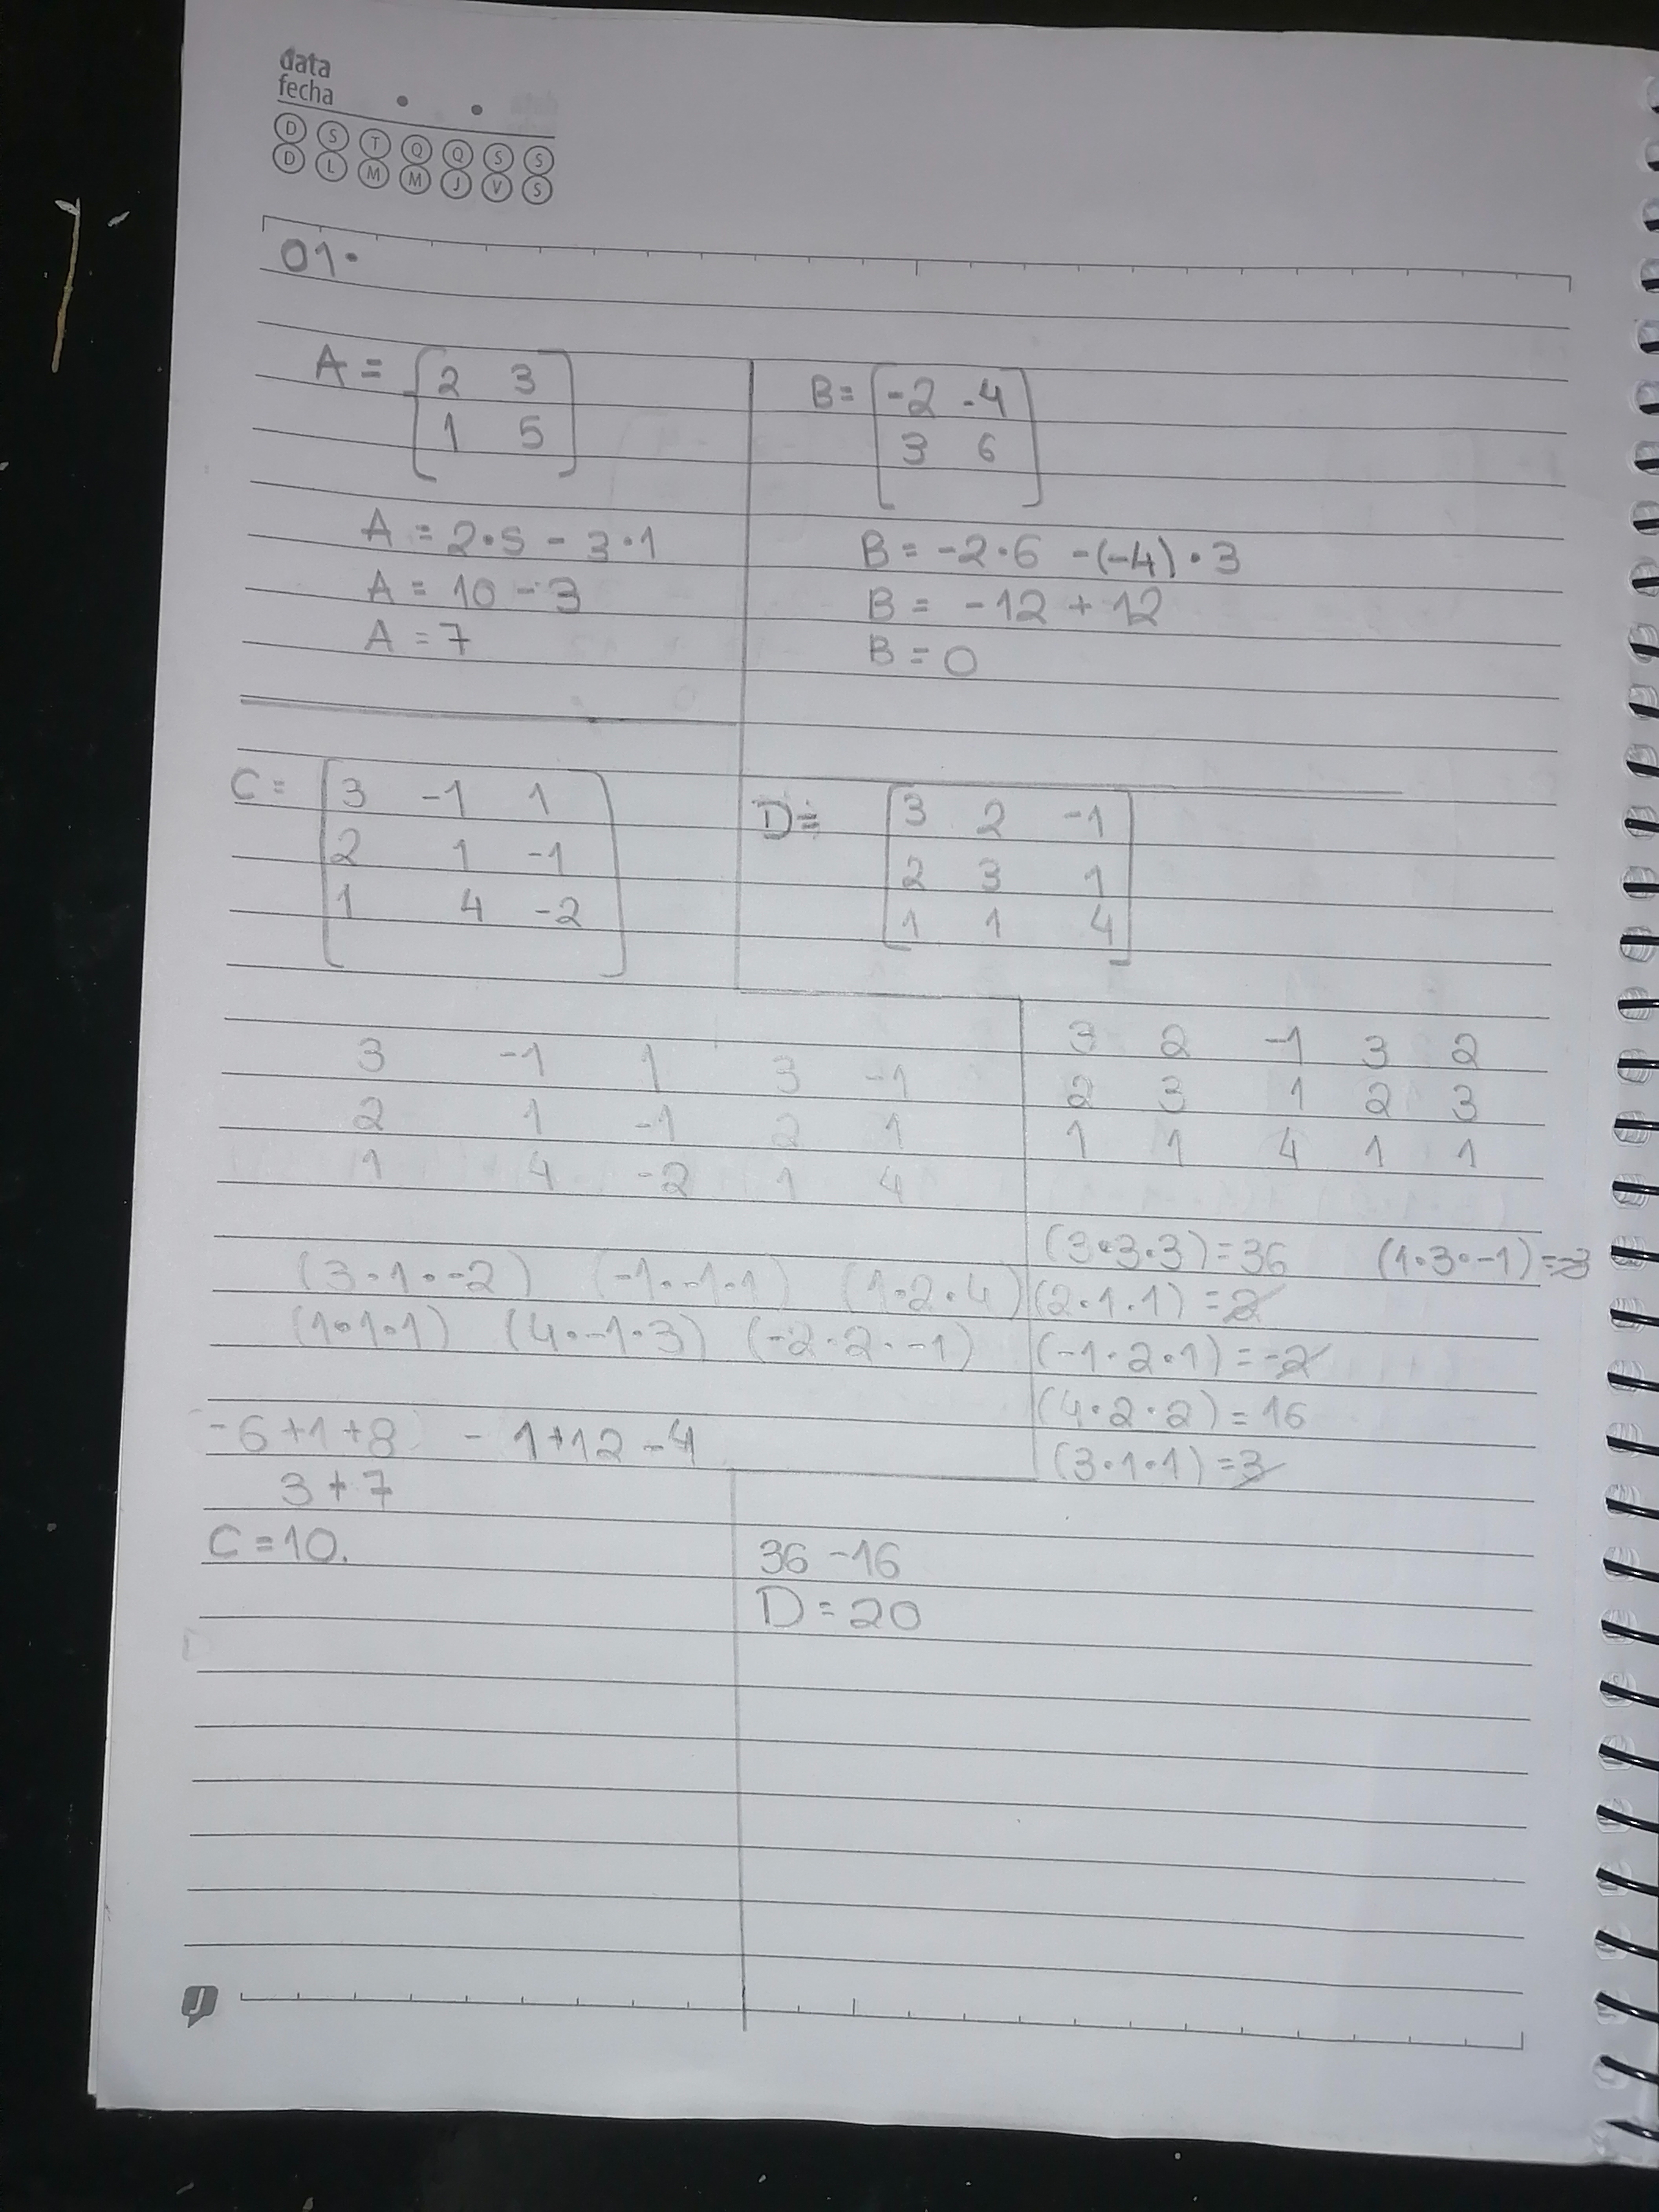 data
fecha
D S T Q Q S S
D L M M J V S
01.
A = [2 3
1 5]
A = 2·5 - 3·1
A = 10 - 3
A = 7
B = [-2 -4
3 6]
B = -2·6 -(-4)·3
B = -12 + 12
B = 0
C = [3 -1 1
2 1 -1
1 4 -2]
3 -1 1 3 -1
2 1 -1 2 1
1 4 -2 1 4
(3·1·-2) (-1·-1·1) (1·2·4)
(1·1·1) (4·-1·3) (-2·2·-1)
-6+1+8 - 1+12-4
3+7
C=10.
D= [3 2 -1
2 3 1
1 1 4]
3 2 -1 3 2
2 3 1 2 3
1 1 4 1 1
(3·3·3)=36 (1·3·-1)=-3
(2·1·1)=2
(-1·2·1)=-2
(4·2·2)=16
(3·1·1)=3
36-16
D=20
J